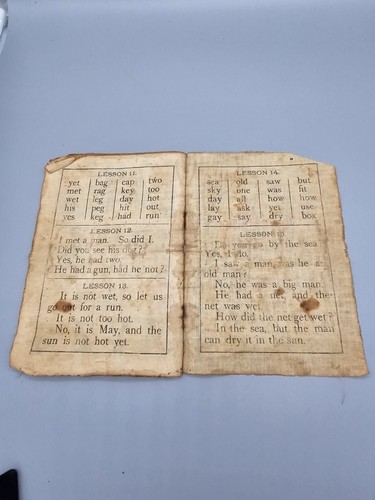 LESSON 11.
yet bag cap two
met rag key too
wet leg day hot
his peg hit out
yes keg had run
LESSON 12.
I met a man. So did I.
Did you see his dog?
Yes, he had two.
He had a gun, had he not?
LESSON 13.
It is not wet, so let us
go out for a run.
It is not too hot.
No, it is May, and the
sun is not hot yet.
LESSON 14.
sea old saw but
sky one was fit
day all how how
lay ask yet use
gay say dry box
LESSON 15.
Do you go by the sea
Yes, I do.
I saw a man, was he a
old man?
No, he was a big man.
He had a net, and the
net was wet.
How did the net get wet?
In the sea, but the man
can dry it in the sun.